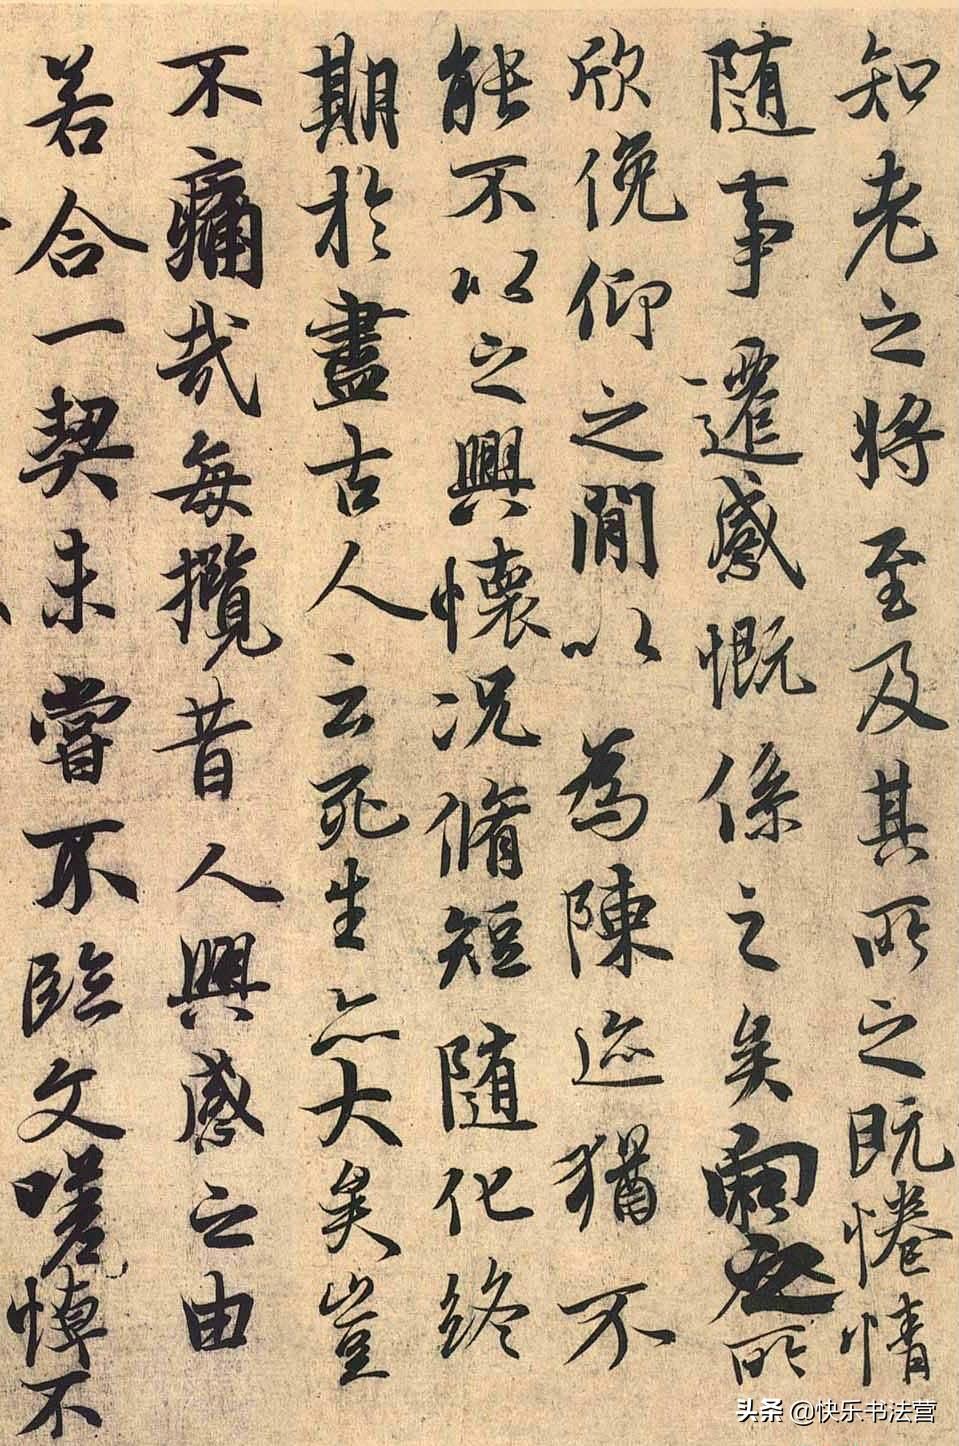 知老之將至及其所之既惓情
随事遷感慨係之矣向之所
欣俛仰之閒以為陳迹猶不
能不以之興懷況脩短随化終
期於盡古人云死生亦大矣豈
不痛哉每攬昔人興感之由
若合一契未嘗不臨文嗟悼不
头条 @快乐书法营